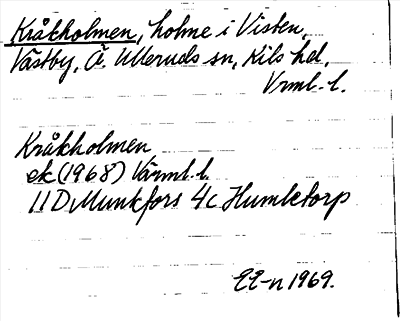 Kråkholmen, holme i Visten,
Västby, Ö. Ulleruds sn, Kils hd,
Vrml. l.
Kråkholmen
ek (1968) Värml. l.
11D Munkfors 4c Humletorp
EE-n 1969.